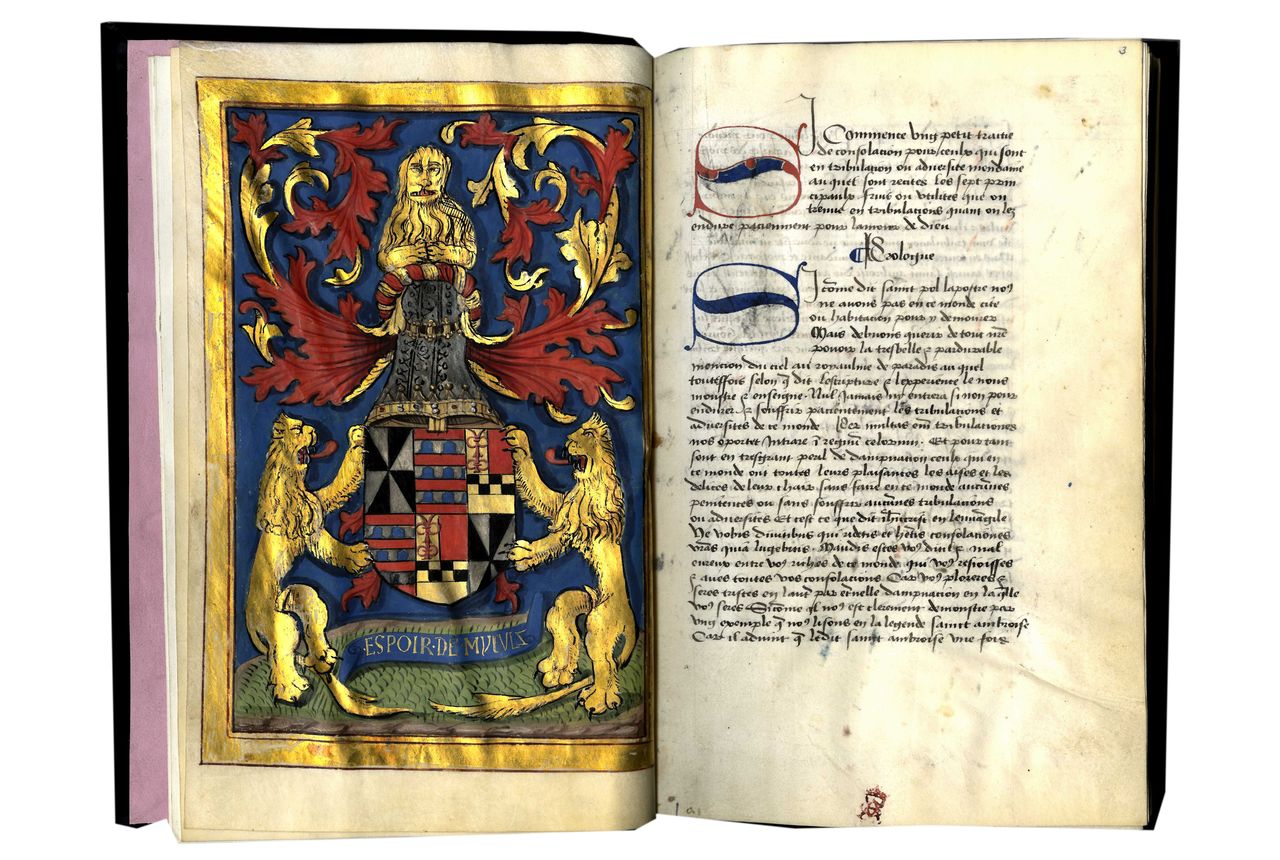 ESPOIR·DE MVEVLZ
3
Icy Commence vng petit traitie
de consolation pour ceulx qui sont
en tribulation ou aduersite mondaine
au quel sont recites les sept prin
cipaulx fruis ou vtilites que on
treuue en tribulations quant on les
endure paciemment pour lamour de dieu
Prologue
Sicōme dit saint pol lapostre noꝰ
ne auons pas en ce monde cite
ou habitacion pour y demourer
Mais debuons querir de tout nr̄e
pouoir la tresbelle ⁊ pardurable
mencion du ciel au royaulme de paradis au quel
touteffois selon q̄ dit lescripture ⁊ lexperience le nous
monstre ⁊ enseigne. Nul Jamais ny entrera si non pour
endurer ⁊ souffrir paciemment les tribulations et
aduersites de ce monde Per multas em̄ tribulationes
nos oportet Intrare ī regnū celorum. Et pour tant
sont en tresgrant peril de dampnation ceulx qui en
ce monde ont toutes leurs plaisances les aises et les
delices de leur chair sans faire en ce monde aucunes
penitences ou sans souffrir aucunes tribulations
ou aduersites Et cest ce que dit en leuuangile
Ve vobis diuitibus qui ridetis et hētis consolaciones
vr̄as quia lugebitis. Maudis estes voꝰ mal
eureux entre voꝰ riches de ce monde qui voꝰ resioisses
⁊ aues toutes vos consolacions Car voꝰ ploreres ⁊
seres tristes en laut̄ par et̄nelle dampnation en la q̄lle
voꝰ seres Sicōme il noꝰ est clerement demonstre par
vng exemple q̄ noꝰ lisons en la legende sainct ambroise
Car il aduint q̄ ledit sainct ambroise vne fois